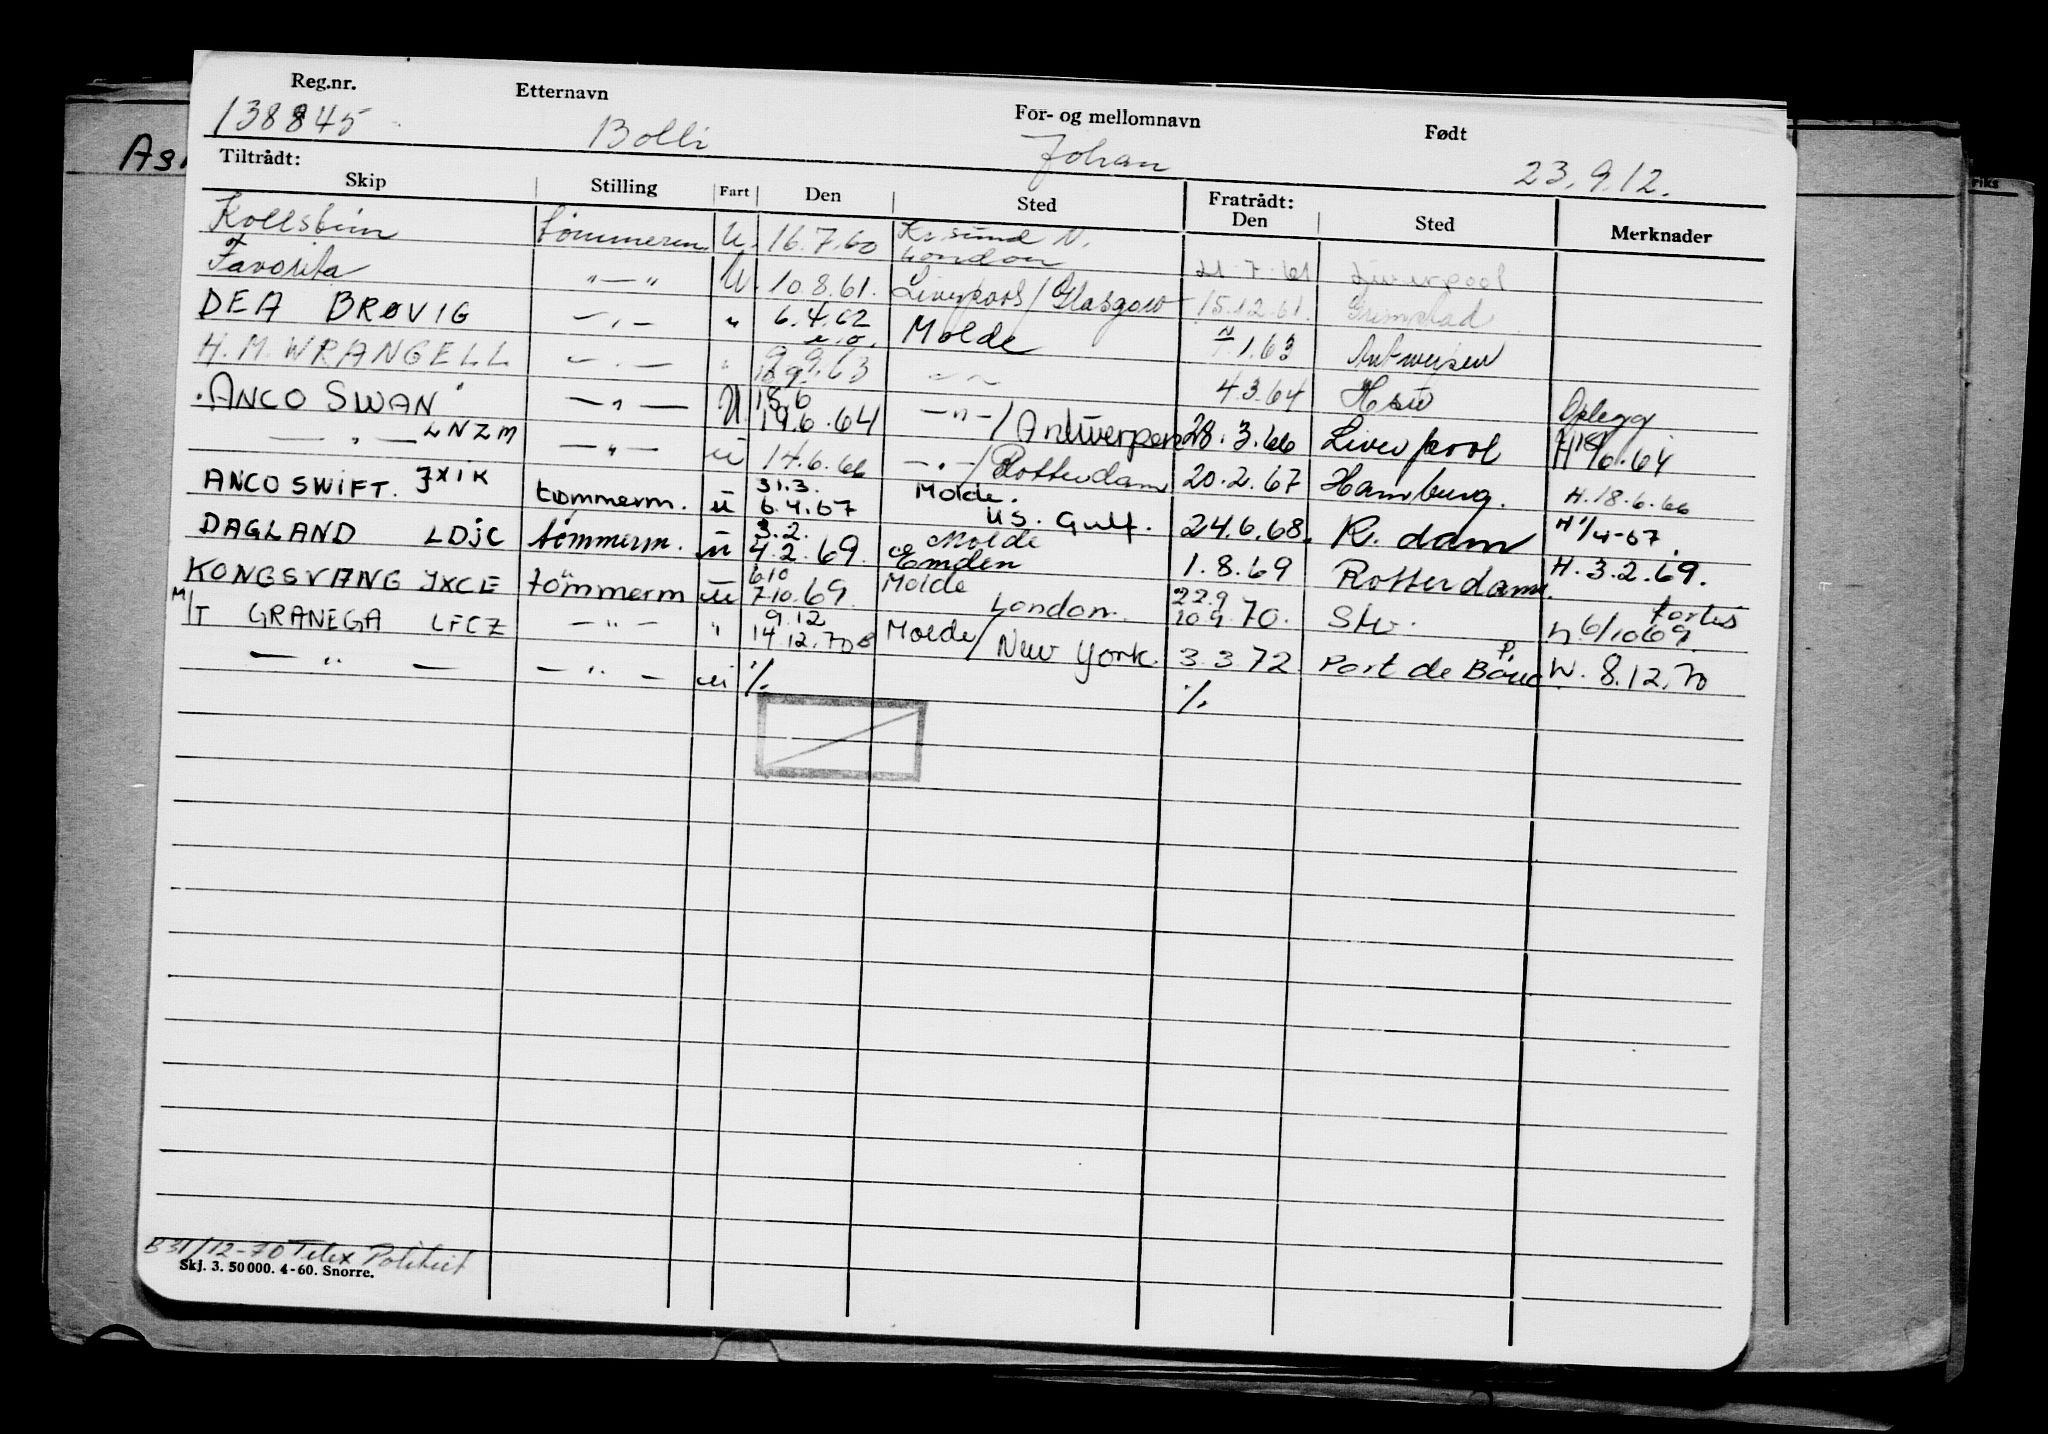 Reg.nr. Etternavn For- og mellomnavn Født
138845 Bolli Johan 23.9.12.
Tiltrådt: Fratrådt:
Skip Stilling Fart Den Sted Den Sted Merknader
Kollsbinn tømmerm. U. 16.7.60 Kr.sund N. London 21.7.61 Liverpool
Favorita -"- U. 10.8.61. Liverpool/Glasgow 15.12.61. Grimstad
DEA BRØVIG -"- " 6.4.62 Molde 1.63 Antwerpen
H.M. WRANGELL -"- " 9.63 -"- 4.3.64 Opplegg
"ANCO SWAN" LNZM -"- U 18.6 19.6.64 -"-/Antwerpen 28.3.66 Liverpool H 18/6.64
-"- -"- u 14.6.66 -"-/Rotterdam 20.2.67 Hamburg. H.18.6.66
ANCO SWIFT. JXIK tømmerm. u 31.3. 6.4.67 Molde. US. Gulf. 24.6.68. R.dam H 1/4-67.
DAGLAND LDJC tømmerm. u 3.2. 4.2.69. Molde Emden 1.8.69 Rotterdam. H.3.2.69.
KONGSVANG JXCE tömmerm u 6.10 7.10.69 Molde London. 22.9 20.9.70. Stv. 6/10 69
M/T GRANEGA LFCZ -"- " 9.12 14.12.70 Molde/New York. 3.3.72 Port de Bouc. W. 8.12.70
-"- -"- u ./. ./.
B 31/12-70 Telex Politiet
Skj. 3. 50 000. 4-60. Snorre.
Fiks